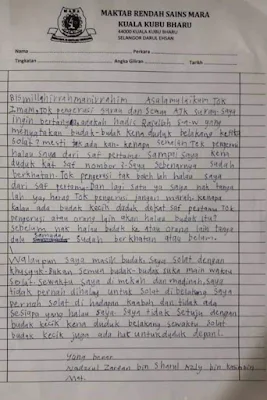 MAKTAB RENDAH SAINS MARA
KUALA KUBU BHARU
44000 KUALA KUBU BHARU
SELANGOR DARUL EHSAN
Nama
Perkara
Tingkatan
Angka Giliran
Tarikh
Bismillahirrahmanirrahim Asalamulaikum Tok
Imam, Tok pengerusi surau dan semua AJK surau. Saya
ingin bertanya adakah hadis Rasulullah s.a.w yang
menyatakan budak-budak kena duduk belakang ketika
Solat? mesti tak ada kan. kenapa semalam Tok pengerusi
halau saya dari saf pertama sampai saya kena
duduk kat saf Sebenarnya sudah
berkhatan. Tok pengerusi tak boleh lah halau saya
dari saf pertama. Dan lagi satu ya saya nak tanya
lah yang harap Tok pengerusi jangan marah. kenapa
kalau ada budak kecik duduk dekat saf pertama Tok
pengerusi atau orang lain akan halau budak itu?
sebelum nak halau budak ke atau orang lain tanya
dulu samada sudah berkhatan atau belum.
Walaupun saya masih budak, saya solat dengan
khusyuk. Bukan semua budak-budak suka main waktu
solat. Sewaktu saya di mekah dan madinah, saya
tidak pernah dihalau untuk solat di belakang. Saya
pernah solat di hadapan kaabah dan tidak ada
sesiapa yang halau saya. Saya tidak setuju dengan
budak kecik kena duduk belakang sewaktu solat
budak kecik juga ada hak untuk duduk depan!
Yang benar
bin bin